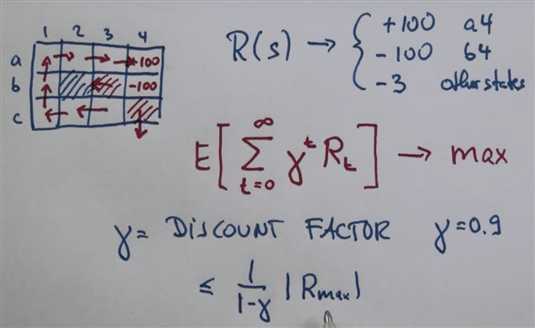 1 2 3 4
a +100
b -100
c
R(s) → { +100 a4
-100 b4
-3 other states
E[∑_{t=0}^{∞} γ^t R_t] → max
γ = DISCOUNT FACTOR γ=0.9
≤ 1/(1-γ) |Rmax|